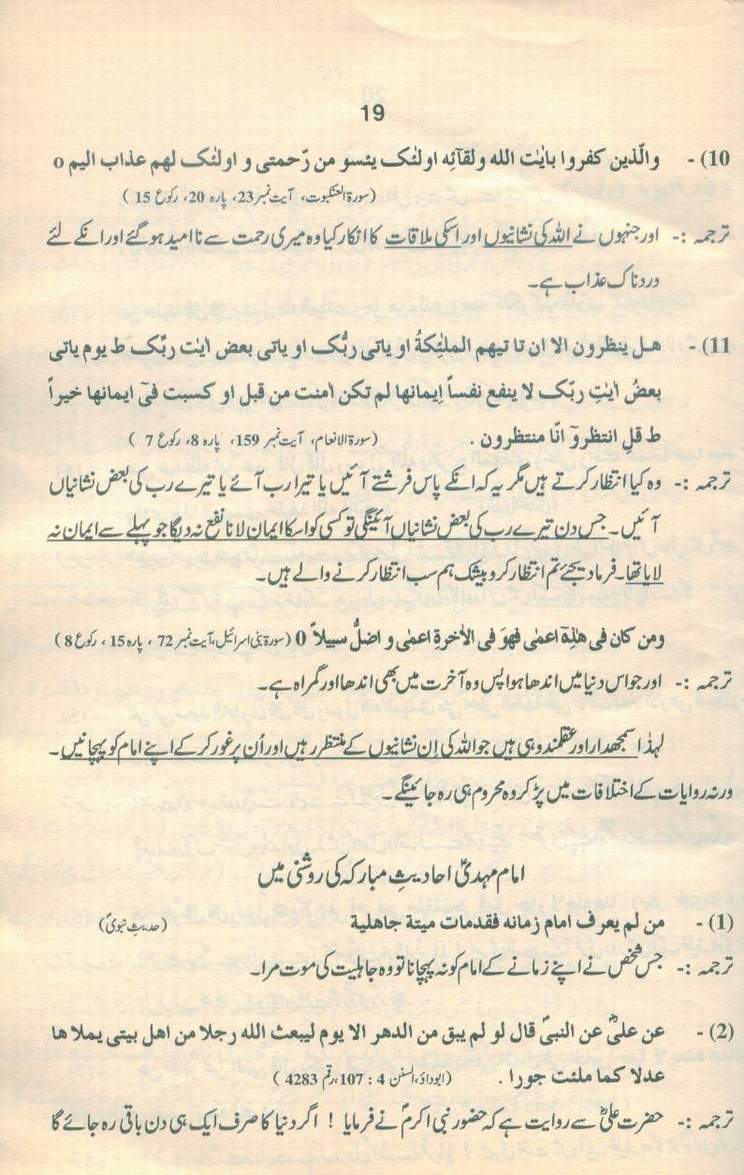 19
10)- والّذین کفروا بایٰت اللہ ولقآئِہ اولٰئک یئسو من رّحمتی و اولٰئک لھم عذاب الیم o
(سورۃ العنکبوت، آیت نمبر 23، پارہ 20، رکوع 15 )
ترجمہ :- اور جنہوں نے اللہ کی نشانیوں اور اسکی ملاقات کا انکار کیا وہ میری رحمت سے نا امید ہو گئے اور انکے لئے
دردناک عذاب ہے۔
11)- ھل ینظرون الا ان تا تیھم الملٰئِکۃُ او یاتی ربُّک او یاتی بعض ایٰت ربّک ط یوم یاتی
بعضُ ایٰتِ ربّک لا ینفع نفساً اِیمانھا لم تکن اٰمنت من قبل او کسبت فیٓ ایمانھا خیراً
ط قلِ انتظروٓ انّا منتظرون . (سورۃ الانعام، آیت نمبر 159، پارہ 8، رکوع 7 )
ترجمہ :- وہ کیا انتظار کرتے ہیں مگر یہ کہ انکے پاس فرشتے آئیں یا تیرا رب آئے یا تیرے رب کی بعض نشانیاں
آئیں۔ جس دن تیرے رب کی بعض نشانیاں آئینگی تو کسی کو اسکا ایمان لانا نفع نہ دیگا جو پہلے سے ایمان نہ
لایا تھا۔ فرما دیجئے تم انتظار کرو بیشک ہم سب انتظار کرنے والے ہیں۔
ومن کان فی ھٰذِہٖ اعمٰی فھوَ فی الاٰخرۃِ اعمٰی و اضلُّ سبیلاً 0 (سورۃ بنی اسرائیل، آیت نمبر 72 ، پارہ 15 ، رکوع 8 )
ترجمہ :- اور جو اس دنیا میں اندھا ہوا پس وہ آخرت میں بھی اندھا اور گمراہ ہے۔
لہٰذا سمجھدار اور عقلمند وہی ہیں جو اللہ کی اِن نشانیوں کے منتظر رہیں اور اُن پر غور کر کے اپنے امام کو پہچانیں۔
ورنہ روایات کے اختلافات میں پڑ کر وہ محروم ہی رہ جائینگے۔
امام مہدیؑ احادیثِ مبارکہ کی روشنی میں
(1) - من لم یعرف امام زمانہ فقدمات میتۃ جاھلیۃ (حدیثِ نبویؐ)
ترجمہ :- جس شخص نے اپنے زمانے کے امام کو نہ پہچانا تو وہ جاہلیت کی موت مرا۔
(2) - عن علیؓ عن النبیؐ قال لو لم یبق من الدھر الا یوم لیبعث اللہ رجلا من اھل بیتی یملا ھا
عدلا کما ملئت جورا . (ابوداؤ، السنن 4 : 107، رقم 4283 )
ترجمہ :- حضرت علیؓ سے روایت ہے کہ حضور نبی اکرمؐ نے فرمایا ! اگر دنیا کا صرف ایک ہی دن باقی رہ جائے گا